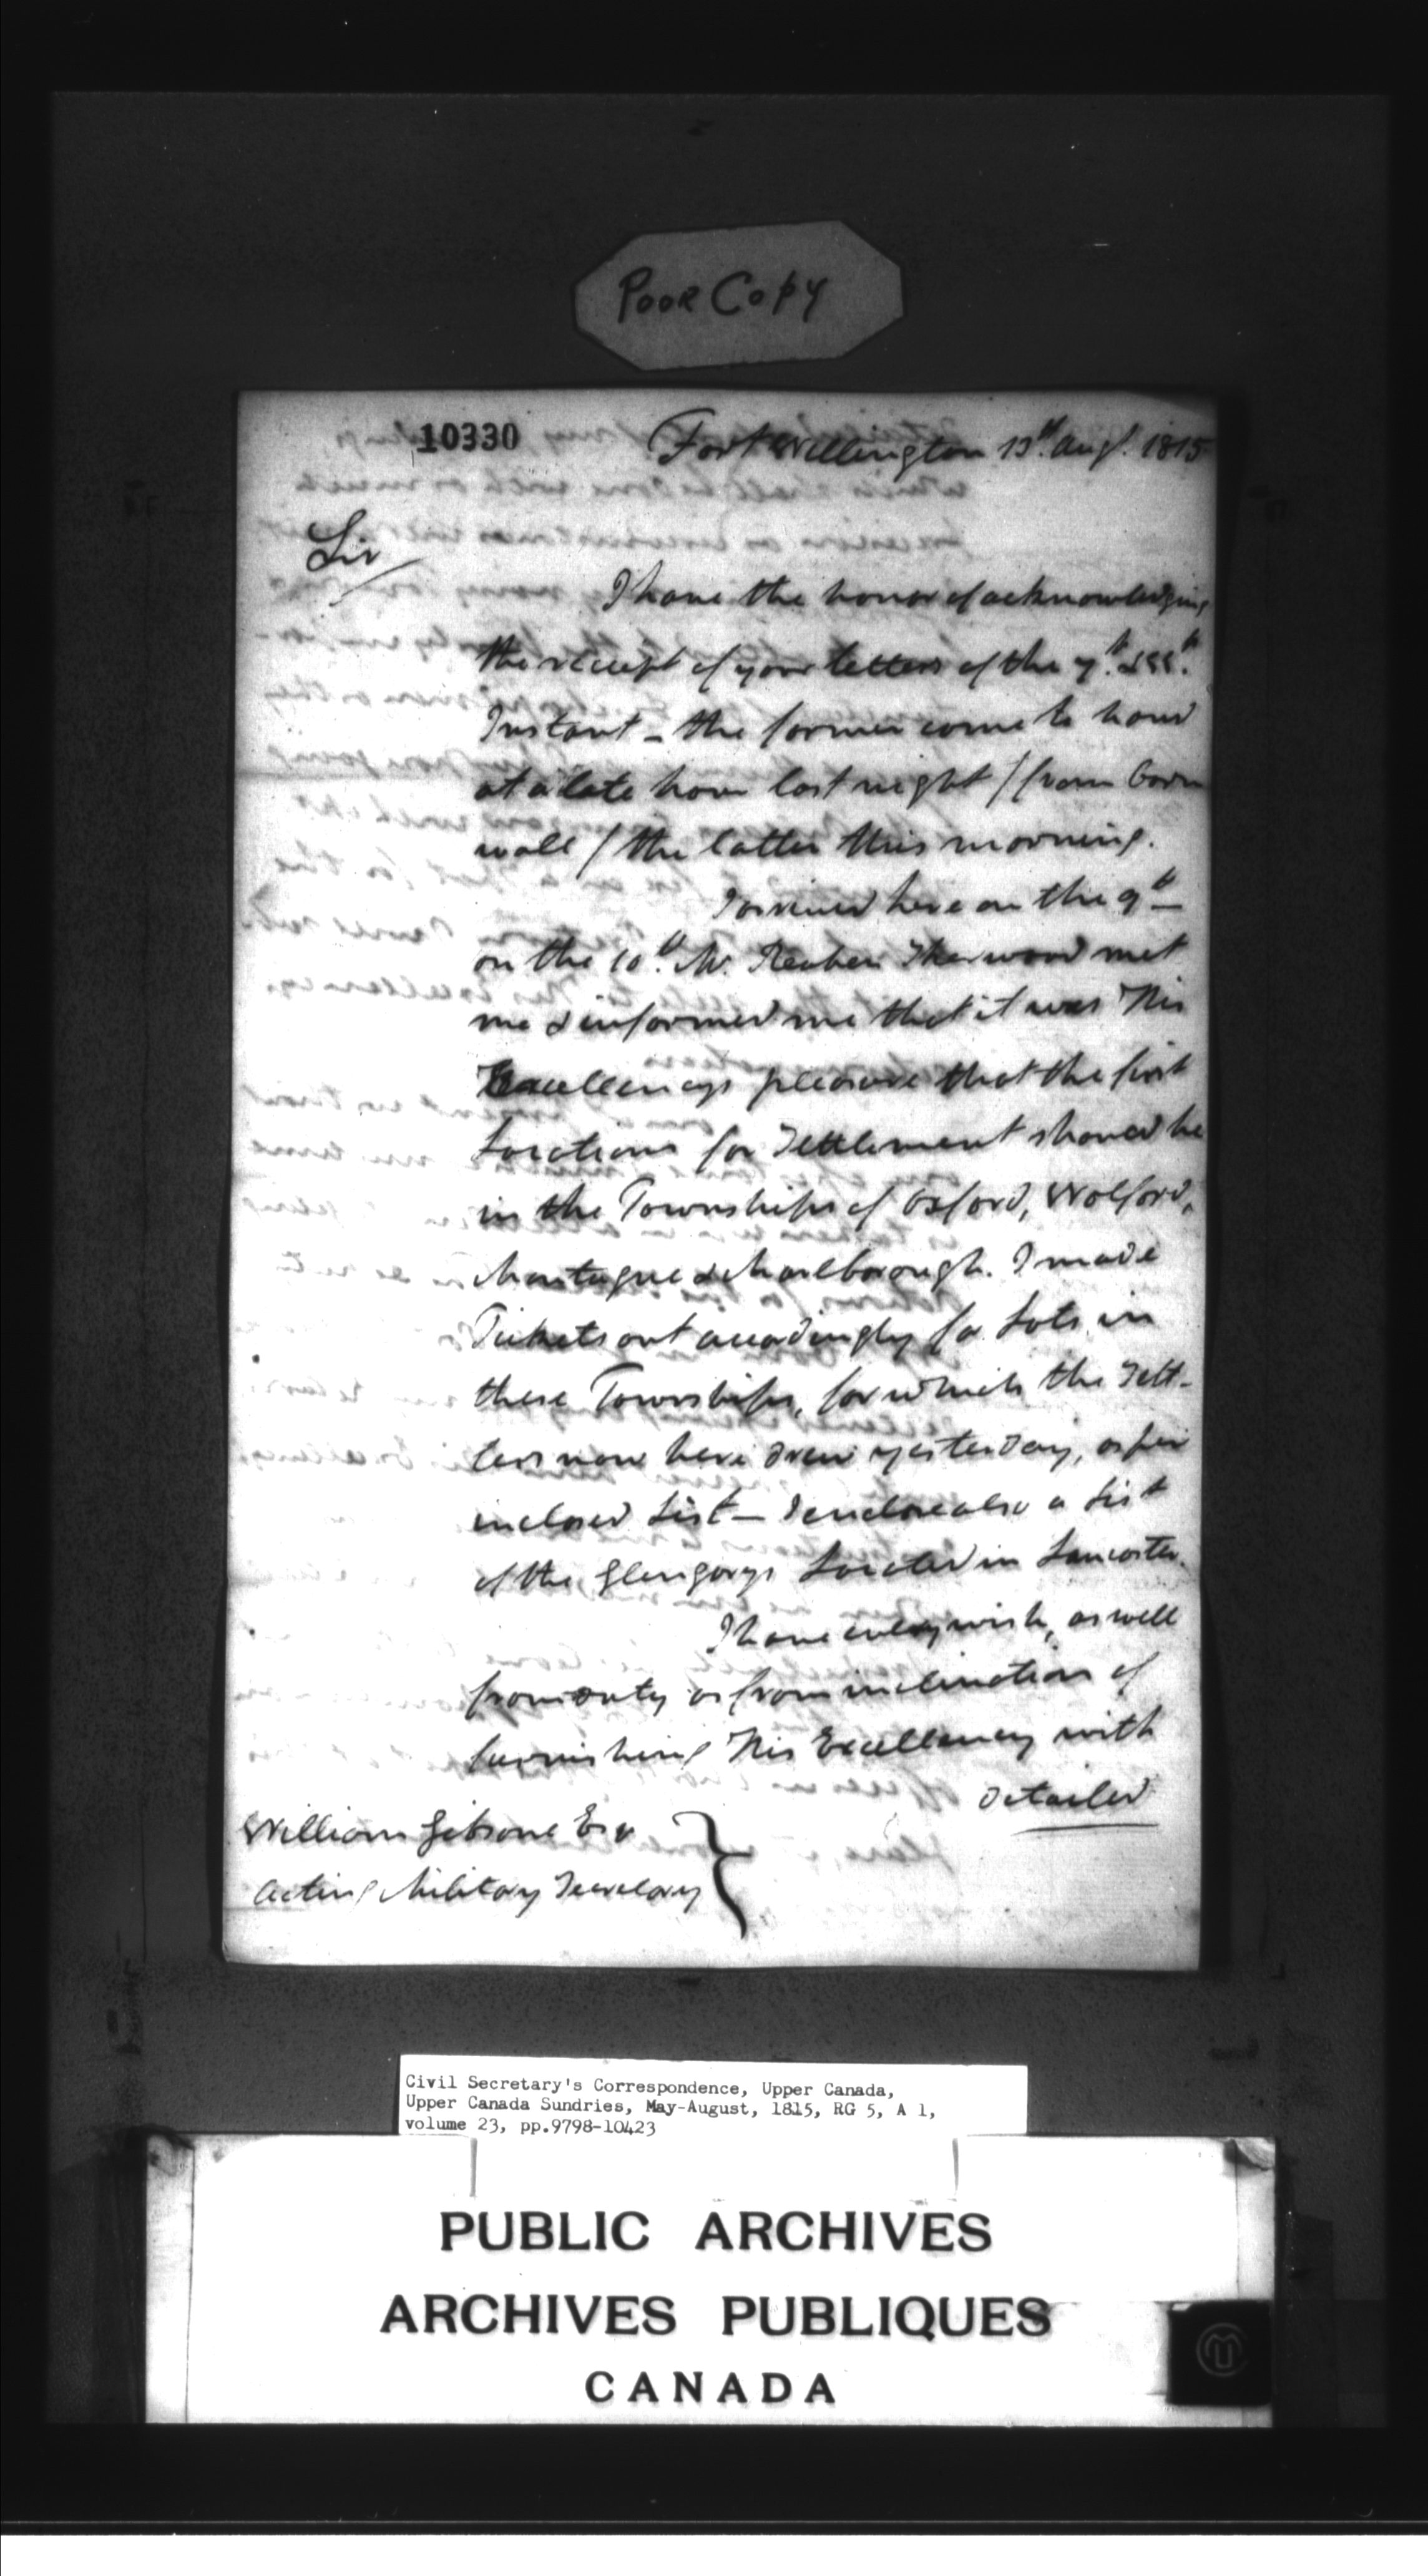 POOR COPY
10330
Fort Wellington 13th. Augt. 1815
Sir
I have the honor of acknowledging
the receipt of your letters of the 7th. & 11th.
Instant – the former came to hand
at a late hour last night / from Corn
wall / the latter this morning.
I arrived here on the 9th –
on the 10th. Mr. Reuben Sherwood met
me & informed me that it was His
Excellencys pleasure that the first
Locations for Settlement should be
in the Townships of Oxford, Wolford,
Montague & Marlborough. I made
Tickets out accordingly for Lots in
these Townships, for which the Sett-
lers now here drew yesterday, as per
inclosed List – I enclose also a List
of the Glengarys Located in Lancaster.
I have every wish, as well
from duty as from inclination of
furnishing His Excellency with
detailed
William Gibsone Esqr
Acting Military Secretary
Civil Secretary's Correspondence, Upper Canada,
Upper Canada Sundries, May-August, 1815, RG 5, A 1,
volume 23, pp.9798-10423
PUBLIC ARCHIVES
ARCHIVES PUBLIQUES
CANADA